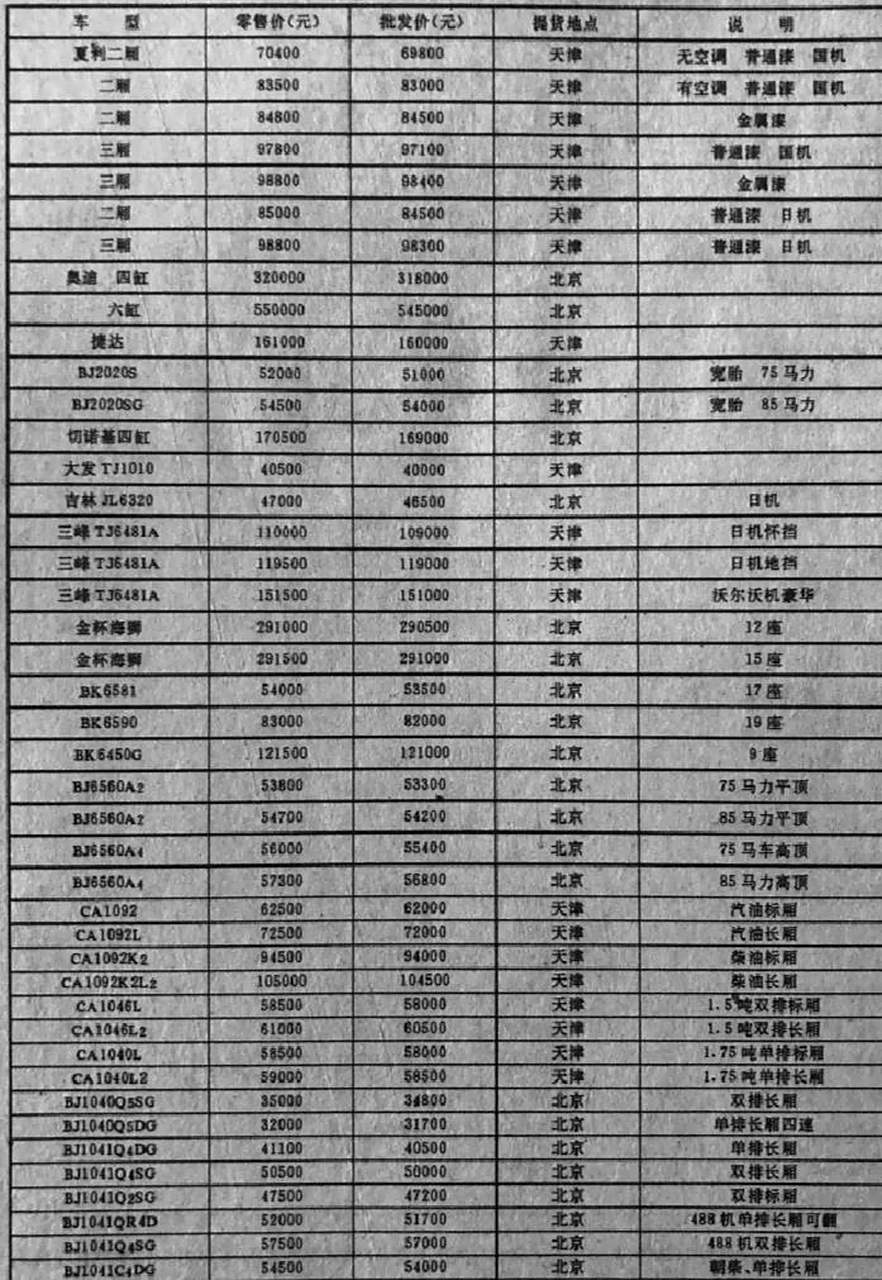 车 型 零售价(元) 批发价(元) 提货地点 说 明
夏利二厢 70400 69800 天津 无空调 普通漆 国机
二厢 83500 83000 天津 有空调 普通漆 国机
二厢 84800 84500 天津 金属漆
三厢 97800 97100 天津 普通漆 国机
三厢 98800 98400 天津 金属漆
二厢 85000 84500 天津 普通漆 日机
三厢 98800 98300 天津 普通漆 日机
奥迪 四缸 320000 318000 北京
六缸 550000 545000 北京
捷达 161000 160000 天津
BJ2020S 52000 51000 北京 宽胎 75马力
BJ2020SG 54500 54000 北京 宽胎 85马力
切诺基四缸 170500 169000 北京
大发TJ1010 40500 40000 天津
吉林JL6320 47000 46500 北京 日机
三峰TJ6481A 110000 109000 天津 日机怀挡
三峰TJ6481A 119500 119000 天津 日机地挡
三峰TJ6481A 151500 151000 天津 沃尔沃机豪华
金杯海狮 291000 290500 北京 12座
金杯海狮 291500 291000 北京 15座
BK6581 54000 53500 北京 17座
BK6590 83000 82000 北京 19座
BK6450G 121500 121000 北京 9座
BJ6560A2 53800 53300 北京 75马力平顶
BJ6560A2 54700 54200 北京 85马力平顶
BJ6560A4 56000 55400 北京 75马车高顶
BJ6560A4 57300 56800 北京 85马力高顶
CA1092 62500 62000 天津 汽油标厢
CA1092L 72500 72000 天津 汽油长厢
CA1092K2 94500 94000 天津 柴油标厢
CA1092K2L2 105000 104500 天津 柴油长厢
CA1046L 58500 58000 天津 1.5吨双排标厢
CA1046L2 61000 60500 天津 1.5吨双排长厢
CA1040L 58500 58000 天津 1.75吨单排标厢
CA1040L2 59000 58500 天津 1.75吨单排长厢
BJ1040Q5SG 35000 34800 北京 双排长厢
BJ1040Q5DG 32000 31700 北京 单排长厢四速
BJ1041Q4DG 41100 40500 北京 单排长厢
BJ1041Q4SG 50500 50000 北京 双排长厢
BJ1041Q2SG 47500 47200 北京 双排标厢
BJ1041QR4D 52000 51700 北京 488机单排长厢可翻
BJ1041Q4SG 57500 57000 北京 488机双排长厢
BJ1041C4DG 54500 54000 北京 朝柴、单排长厢